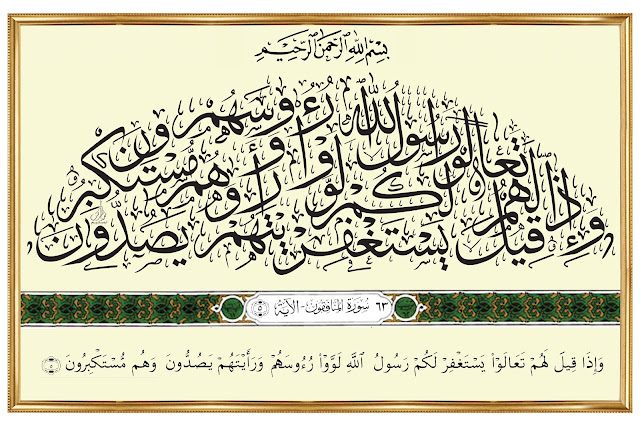 بِسْمِ ٱللَّهِ ٱلرَّحْمَٰنِ ٱلرَّحِيمِ
وَإِذَا قِيلَ لَهُمْ تَعَالَوْا يَسْتَغْفِرْ لَكُمْ رَسُولُ اللَّهِ لَوَّوْا رُءُوسَهُمْ وَرَأَيْتَهُمْ يَصُدُّونَ وَهُم مُّسْتَكْبِرُونَ
٦٣ سورة المنافقون - الآية ٥
وَإِذَا قِيلَ لَهُمْ تَعَالَوْا۟ يَسْتَغْفِرْ لَكُمْ رَسُولُ اللَّهِ لَوَّوْا۟ رُءُوسَهُمْ وَرَأَيْتَهُمْ يَصُدُّونَ وَهُم مُّسْتَكْبِرُونَ ٥